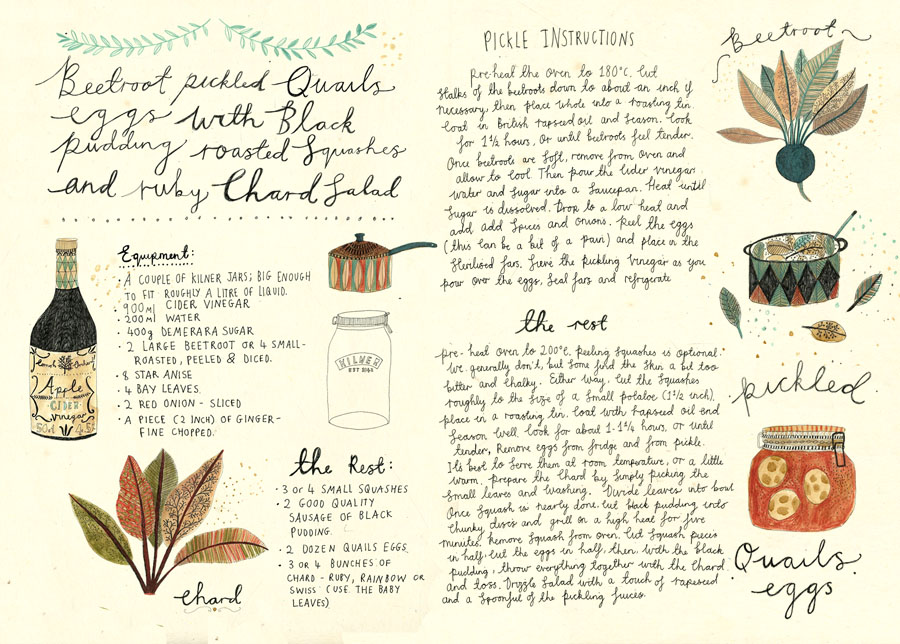 Beetroot pickled Quails
eggs with Black
pudding roasted Squashes
and ruby Chard Salad
Equipment:
· A COUPLE OF KILNER JARS; BIG ENOUGH
TO FIT ROUGHLY A LITRE OF LIQUID.
· 900ml CIDER VINEGAR
· 200ml WATER
· 400g DEMERARA SUGAR
· 2 LARGE BEETROOT OR 4 SMALL-
ROASTED, PEELED & DICED.
· 8 STAR ANISE
· 4 BAY LEAVES.
· 2 RED ONION - SLICED
· A PIECE (2 INCH) OF GINGER-
FINE CHOPPED.
Apple
CIDER
vinegar
KILNER
the Rest:
· 3 or 4 SMALL SQUASHES
· 2 GOOD QUALITY
SAUSAGE OF BLACK
PUDDING.
· 2 DOZEN QUAILS EGGS.
· 3 OR 4 BUNCHES OF
CHARD - RUBY, RAINBOW OR
SWISS (USE THE BABY
LEAVES)
chard
PICKLE INSTRUCTIONS
Pre-heal the oven to 180°C. Cut
stalks of the beetroots down to about an inch if
necessary, then place whole into a roasting tin.
Coat in British rapeseed oil and season. Cook
for 1½ hours, or until beetroots feel tender.
Once beetroots are soft, remove from oven and
allow to cool. Then pour the cider vinegar,
water and sugar into a saucepan. Heat until
sugar is dissolved. Drop to a low heat and
add add spices and onions. Peel the eggs
(this can be a bit of a pain) and place in the
sterilised jars. Sieve the pickling vinegar as you
pour over the eggs, seal jars and refrigerate
the rest
pre-heat oven to 200°C. peeling squashes is optional.
We generally don't, but some find the skin a bit too
bitter and chalky. Either way, cut the squashes
roughly to the size of a small potatoe (1½ inch),
place in a roasting tin. Coat with rapeseed oil and
season well. Cook for about 1-1¼ hours, or until
tender, Remove eggs from fridge and from pickle.
Its best to serve them at room temperature, or a little
warm. prepare the chard by simply picking the
small leaves and washing. Divide leaves into bowl
Once squash is nearly done, cut black pudding into
chunky discs and grill on a high heat for five
minutes. Remove squash from oven. Cut squash pieces
in half, cut the eggs in half, then, with the black
pudding, throw everything together with the chard
and toss. Drizzle salad with a touch of rapeseed
and a spoonful of the pickling juices.
Beetroot
pickled
Quails
eggs